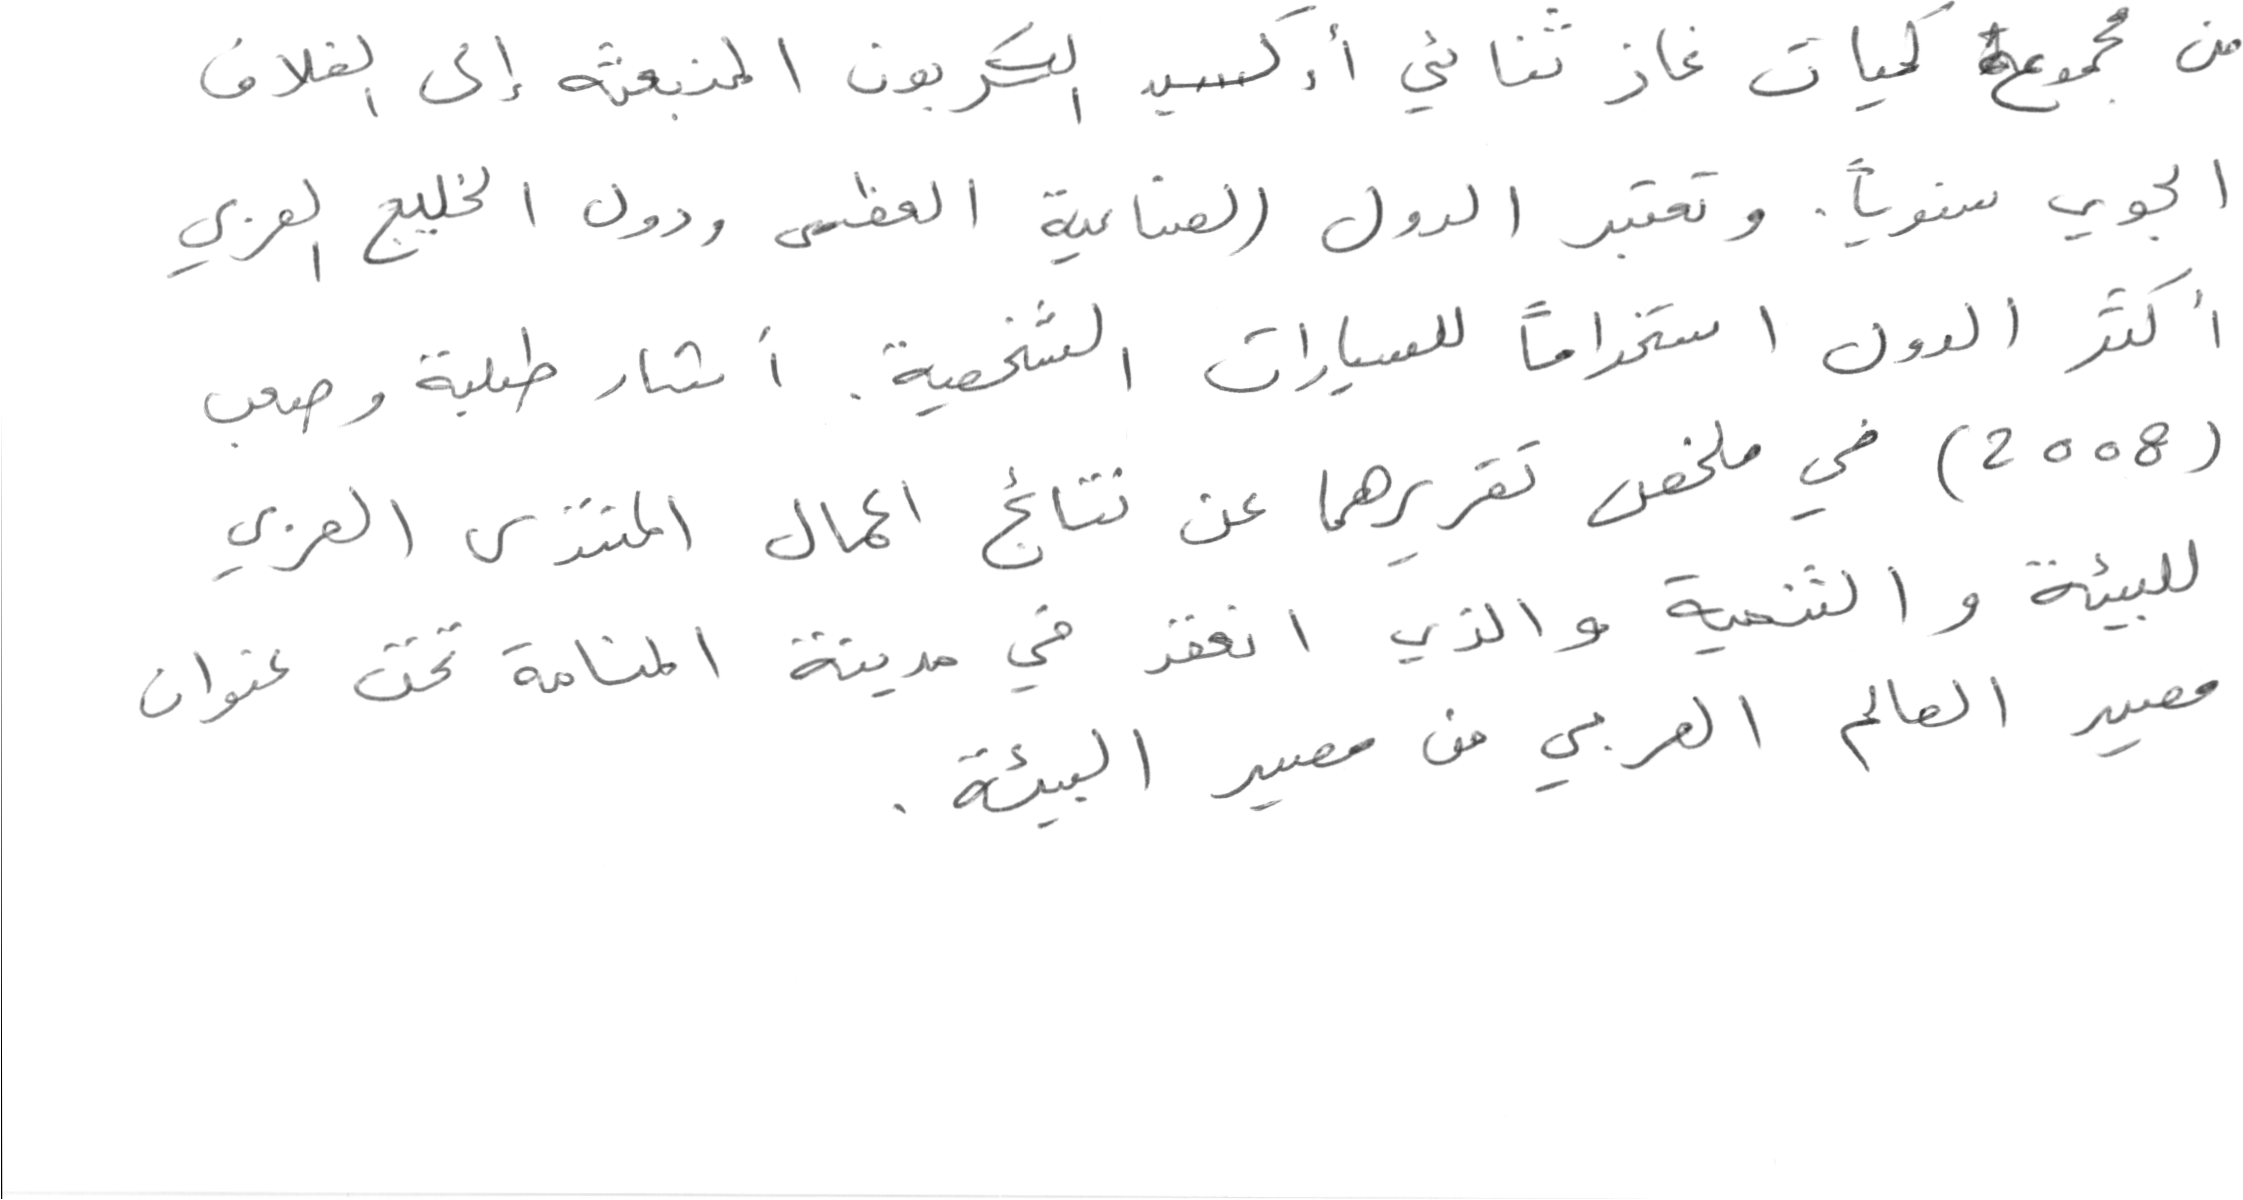 من مجموعة كميات غاز ثنائي أوكسيد الكربون المنبعثه إلى الغلاف
الجوي سنوياً. وتعتبر الدول الصناعية العظمى ودول الخليج العربي
أكثر الدول استخداماً للسيارات الشخصية. أشار طلبة وصعب
(2008) في ملخص تقريرهما عن نتائج اعمال المنتدى العربي
للبيئة والتنمية والذي انعقد في مدينة المنامة تحت عنوان
مصير العالم العربي من مصير البيئة.